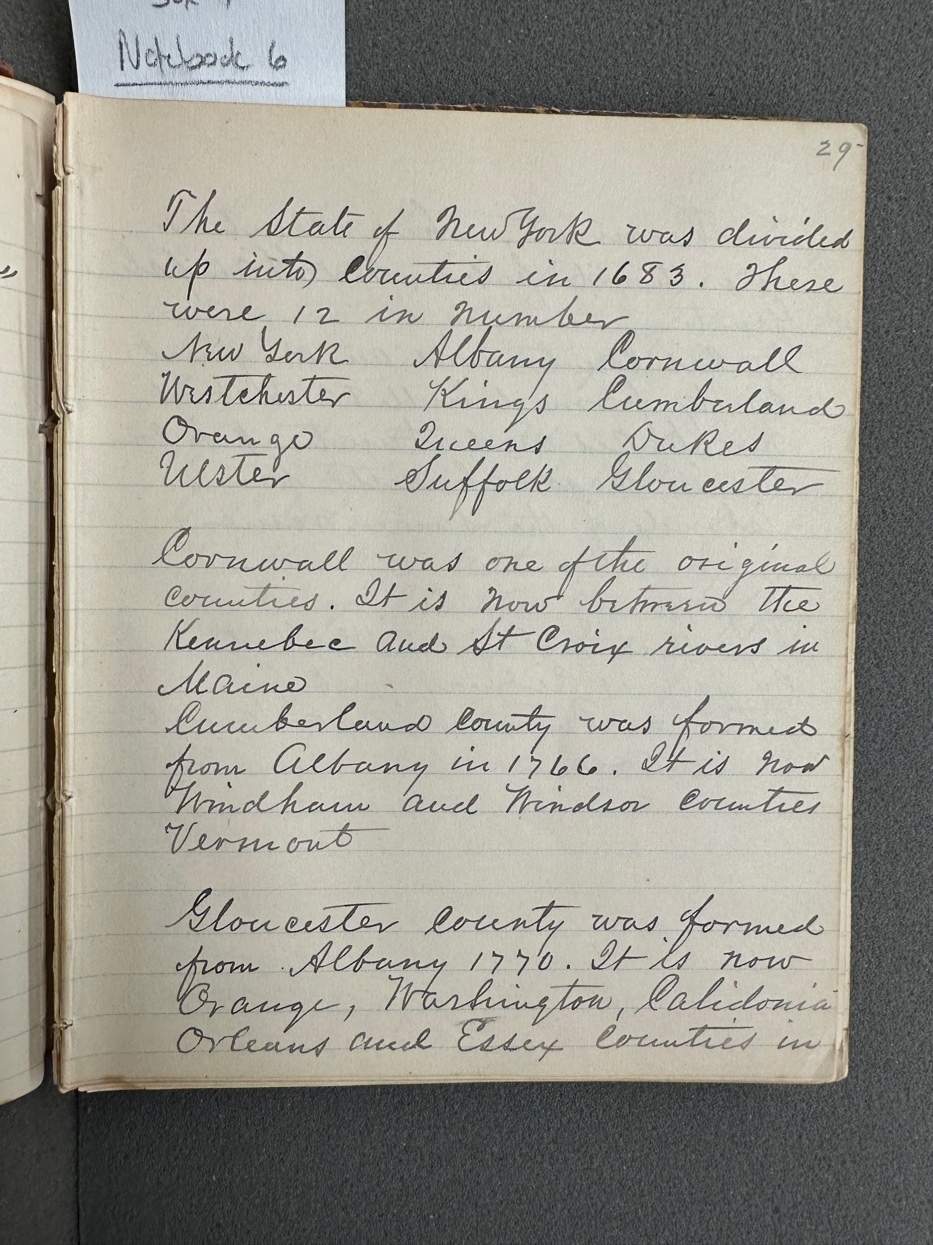 Notebook 6
29
The State of New York was divided
up into Counties in 1683. These
were 12 in Number
New York Albany Cornwall
Westchester Kings Cumberland
Orange Queens Dukes
Ulster Suffolk Gloucester
Cornwall was one of the original
counties. It is now between the
Kennebec and St Croix rivers in
Maine
Cumberland County was formed
from Albany in 1766. It is now
Windham and Windsor Counties
Vermont
Gloucester County was formed
from Albany 1770. It is now
Orange, Washington, Calidonia
Orleans and Essex Counties in